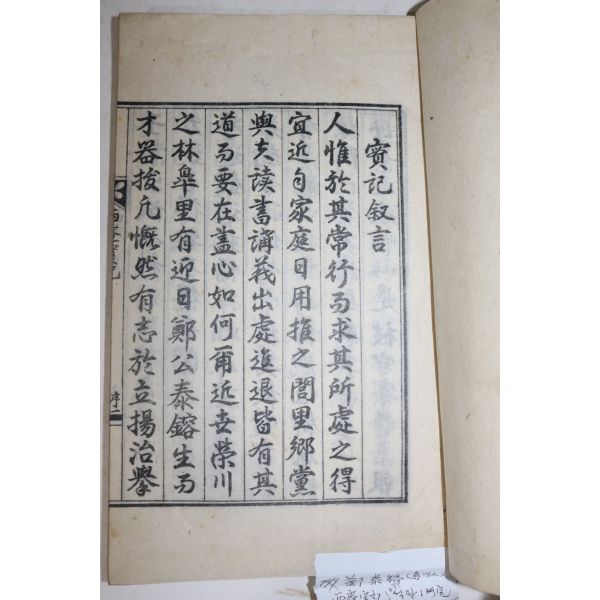 實記叙言
人惟於其常行而求其所處之得
宜近自家庭日用推之閭里鄕黨
與夫读書講義出處進退皆有其
道而要在盖心如何爾近古榮川
之林皐里有近日鄭公泰鎔生而
才器拔凡慨然有志於立揚治擧
序二